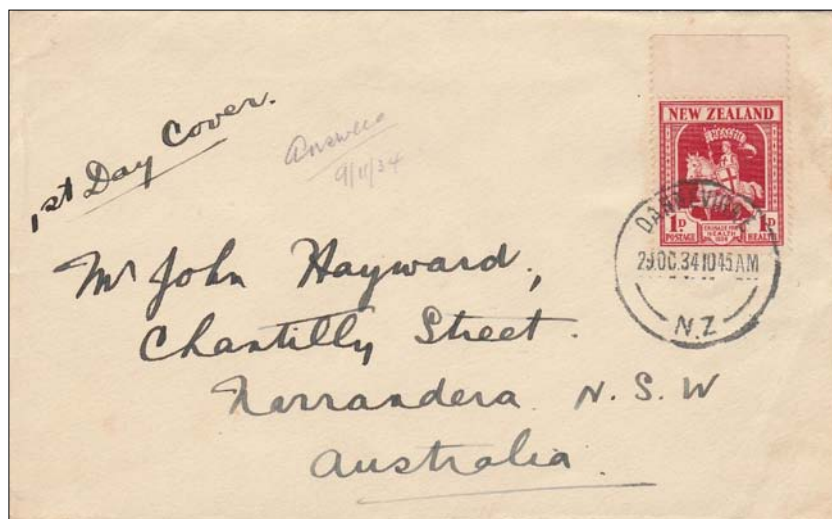 1st Day Cover.
Answered
9/11/34
NEW ZEALAND
HEALTH
1D. 1D.
POSTAGE CRUSADE FOR HEALTH 1934 HEALTH
DANNEVIRKE
29.OC.34 1045AM
N.Z
Mr John Hayward,
Chantilly Street.
Narrandera N.S.W
Australia.